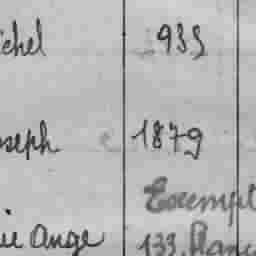 ichel 935
oseph 1879
Exempt
ie Ange 133. Blanc